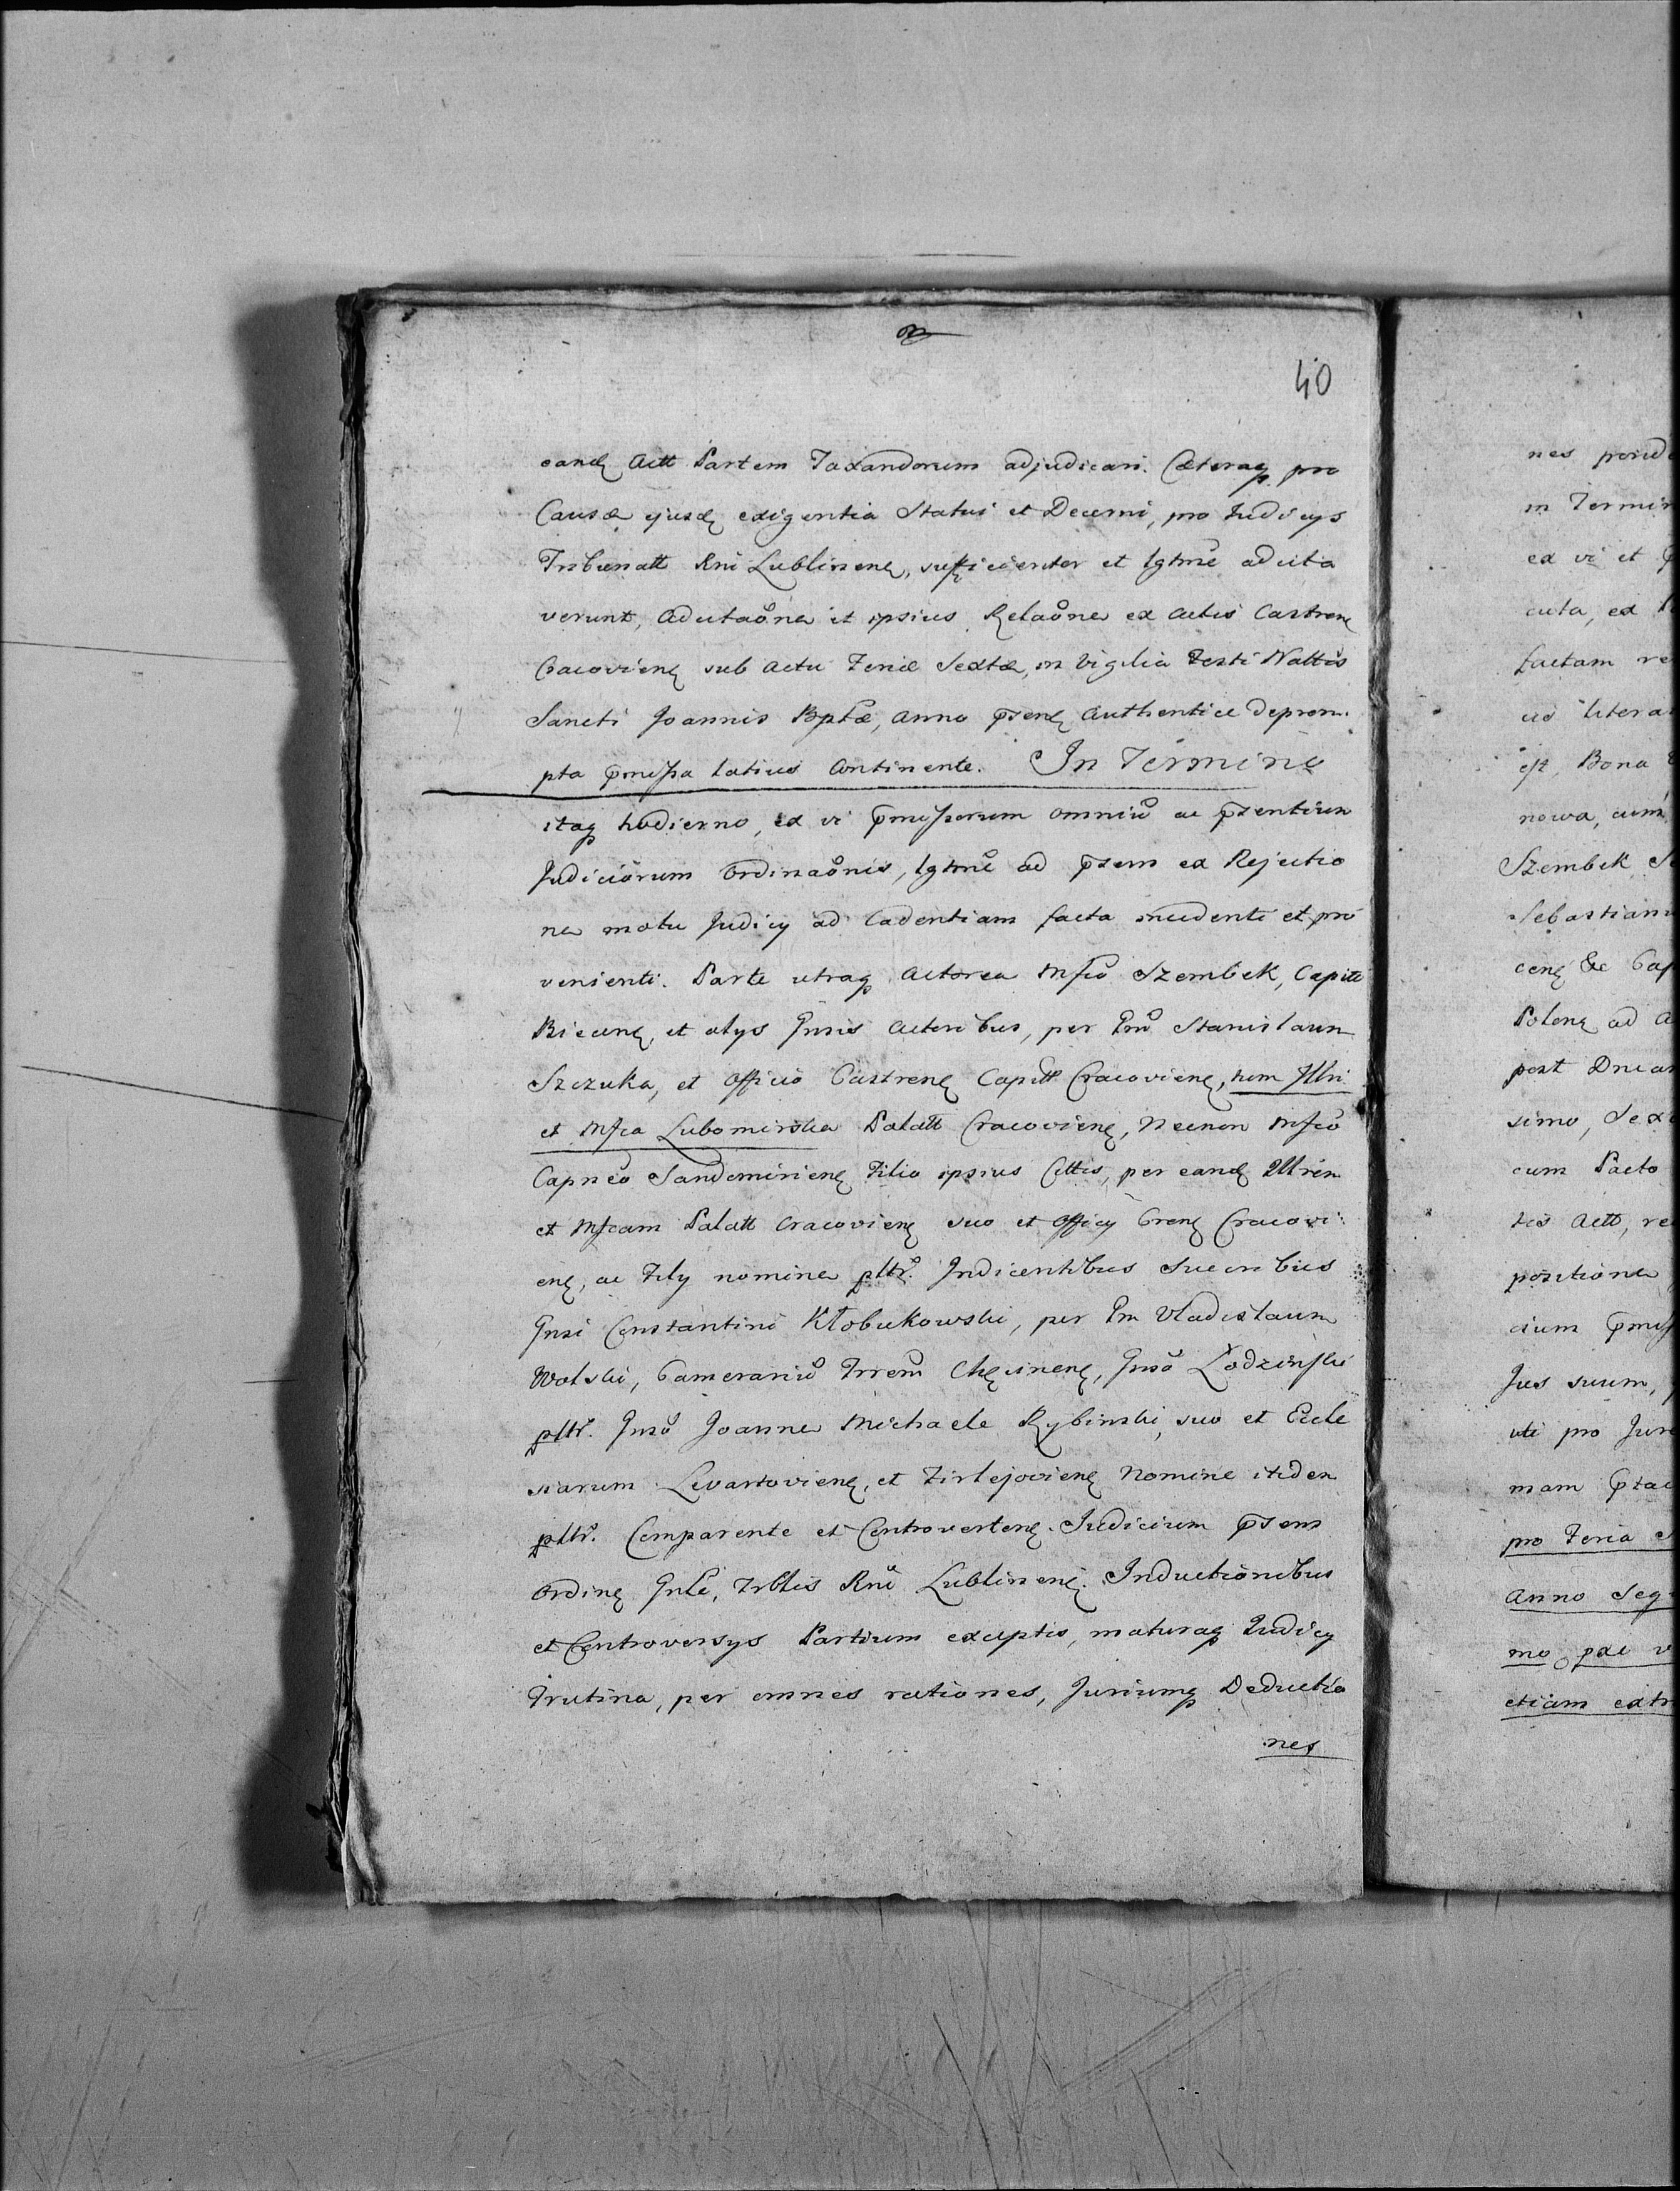 40
eandꝫ Actt Partem Taxandorum adjudicari. Cæteraqꝫ pro
Causæ ejusdꝫ exigentia Statui et Decerni, pro Judicijs
Tribunatt Rni Lublinenꝫ, sufficienter et lgtme adcita
verunt, Adcitaõne et ipsius Relaõne ex Actis Castrenꝫ
Cracovienꝫ sub Actu Feriæ Sextæ, in Vigilia Festi Nattis
Sancti Joannis Bptæ, Anno p̃senꝫ Authentice deprom
pta p̃missa latius continente. In Termino
itaqꝫ hodierno, ex vi p̃missorum omniũ ac p̃sentium
Judiciorum Ordinaõnis, lgtme ad p̃sens ex Rejectio
ne motu Judicij ad Cadentiam facta incidenti et pro
venienti. Parte utraqꝫ Actorea Mfco Szembek, Capitt
Biecenꝫ, et alijs Gnsis Actoribus, per Gnm Stanislaum
Szczuka, et Officio Castrenꝫ Capitt Cracovienꝫ, tum Illri
et Mfca Lubomirska Palatt Cracovienꝫ, Necnon Mfco
Capneo Sandomirienꝫ Filio ipsius Cttis, per eandꝫ Illrem
et Mfcam Palatt Cracovienꝫ suo et Officij Crenꝫ Cracovi
enꝫ, ac Filij nomine pltr. Indicentibus Succribus
Gnsi Constantini Kłobukowski, per Gm Vladislaum
Wolski, Camerariũ Trrem Chęcinenꝫ, Gnso Łodzinski
pltr. Gnso Joanne Michaele Rybinski, suo et Eccle
siarum Levartovienꝫ, et Firlejovienꝫ Nomine itidem
pltr. Comparente et Controvertenꝫ. Judicium p̃sens
Ordinꝫ Gnle, Trblis Rni Lublinenꝫ. Inductionibus
et Controversijs Partium exceptis, maturaqꝫ Judicij
Trutina, per omnes rationes, Juriumqꝫ Deductio
nes
in Termin
ea vi et
cuta, ex
factam re
ad litera
est, Bona
nowa, cum
Szembek
Sebastian
cenꝫ &c Cap
Polenꝫ ad A
post Dncam
simo, Sex
cum Pacto
tis Actt, re
positione
cium p̃miss
Jus suum,
uti pro Jure
pro Feria
Anno Seq
etiam extr